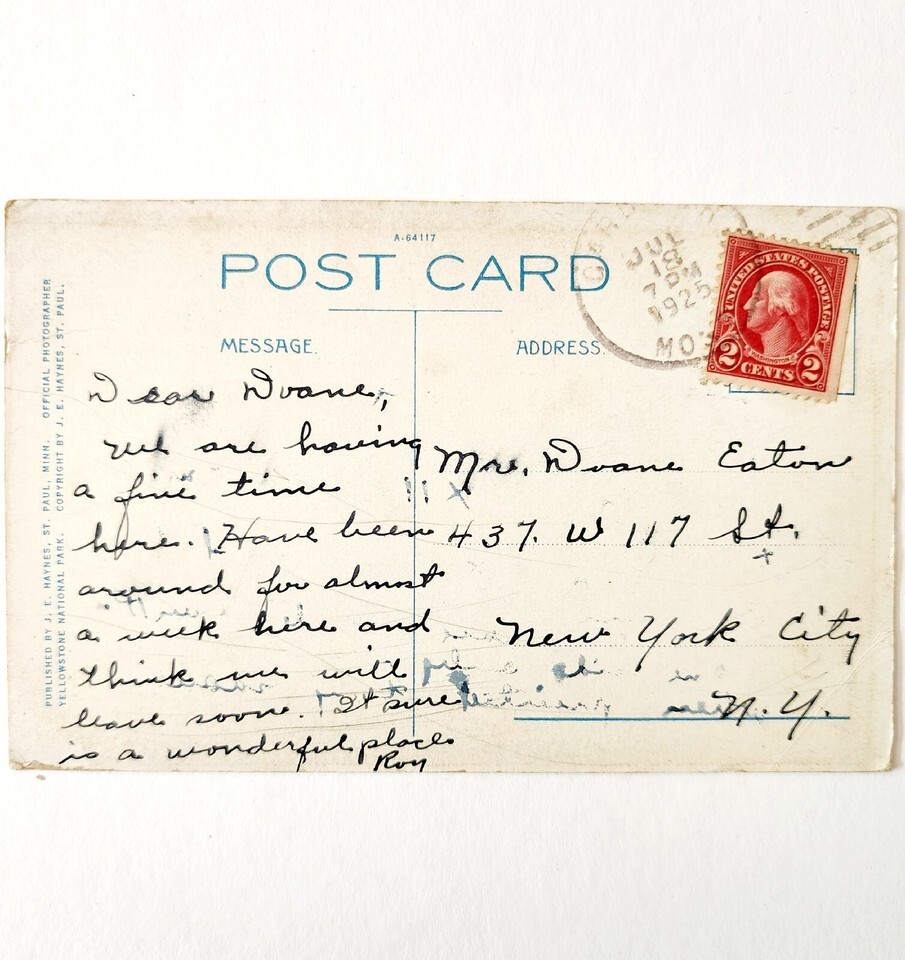 A-64117
POST CARD
MESSAGE.
ADDRESS.
PUBLISHED BY J. E. HAYNES, ST. PAUL, MINN. OFFICIAL PHOTOGRAPHER
YELLOWSTONE NATIONAL PARK. COPYRIGHT BY J. E. HAYNES, ST. PAUL.
JUL
18
7 PM
1925
UNITED STATES POSTAGE
WASHINGTON
2 CENTS 2
Dear Doane,
We are having
a fine time
here. Have been
around for almost
a week here and
think we will
leave soon. It sure
is a wonderful place
Roy
Mrs. Doane Eaton
437. W 117 St.
New York City
N.Y.